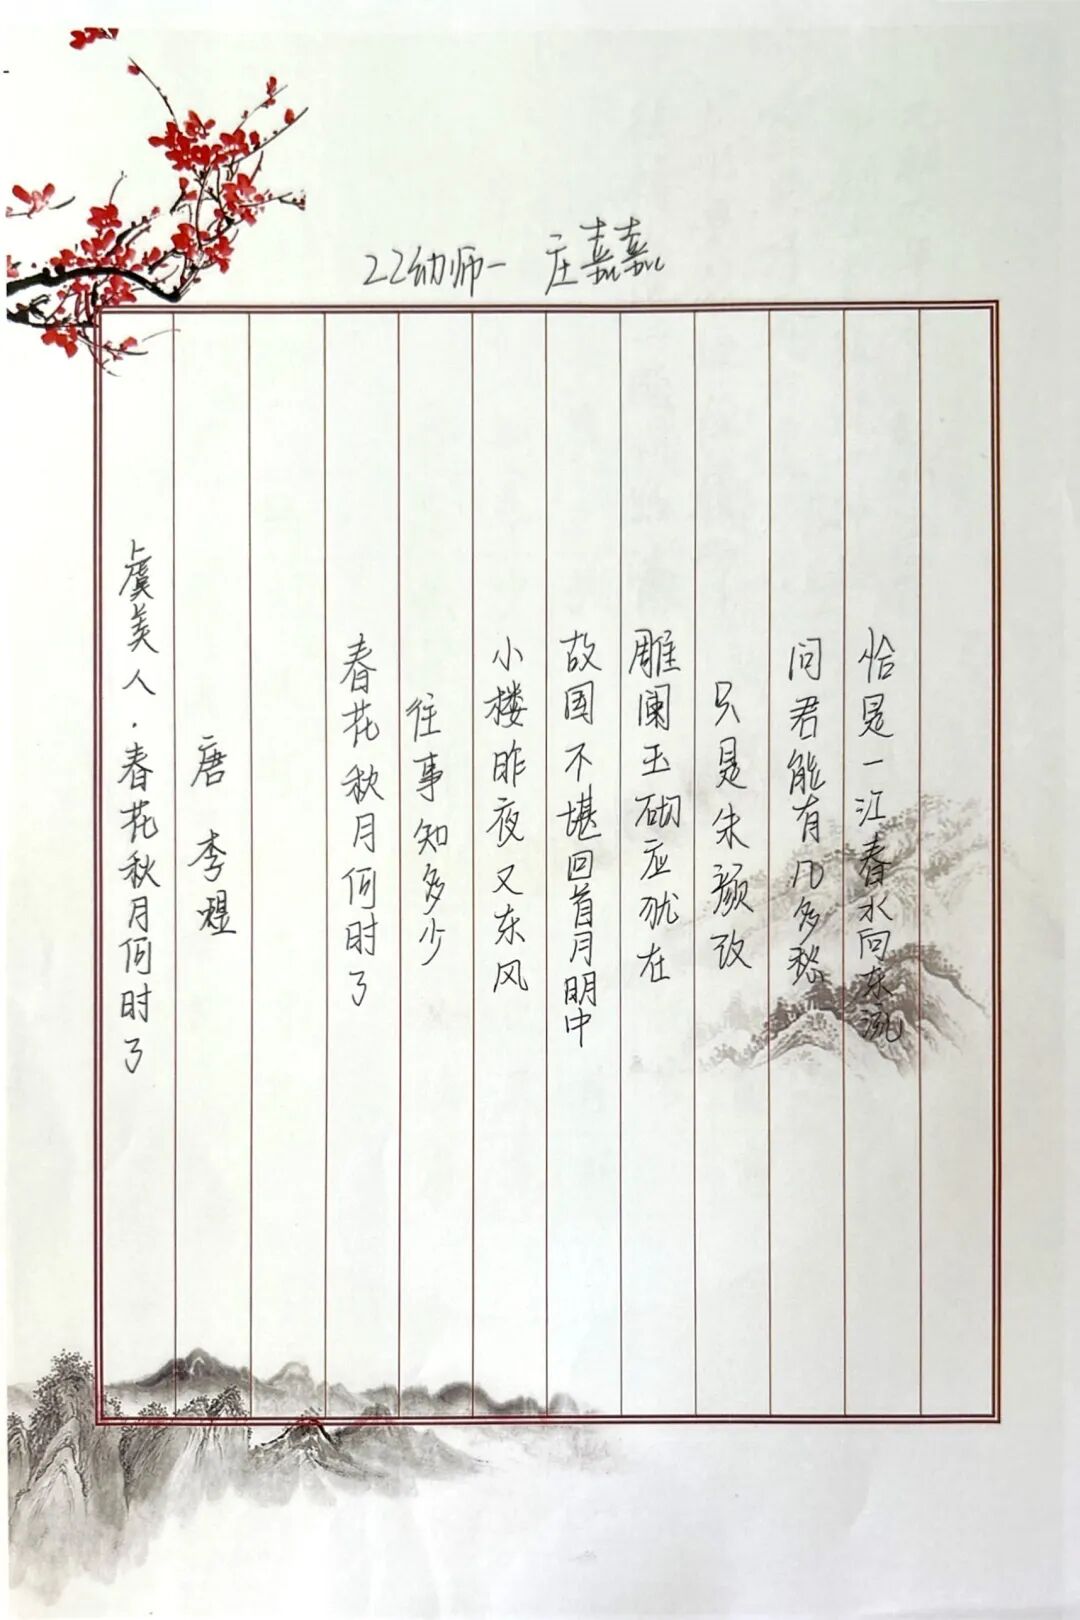 22幼师一 庄嘉嘉
虞美人·春花秋月何时了
唐 李煜
春花秋月何时了
往事知多少
小楼昨夜又东风
故国不堪回首月明中
雕阑玉砌应犹在
只是朱颜改
问君能有几多愁
恰是一江春水向东流